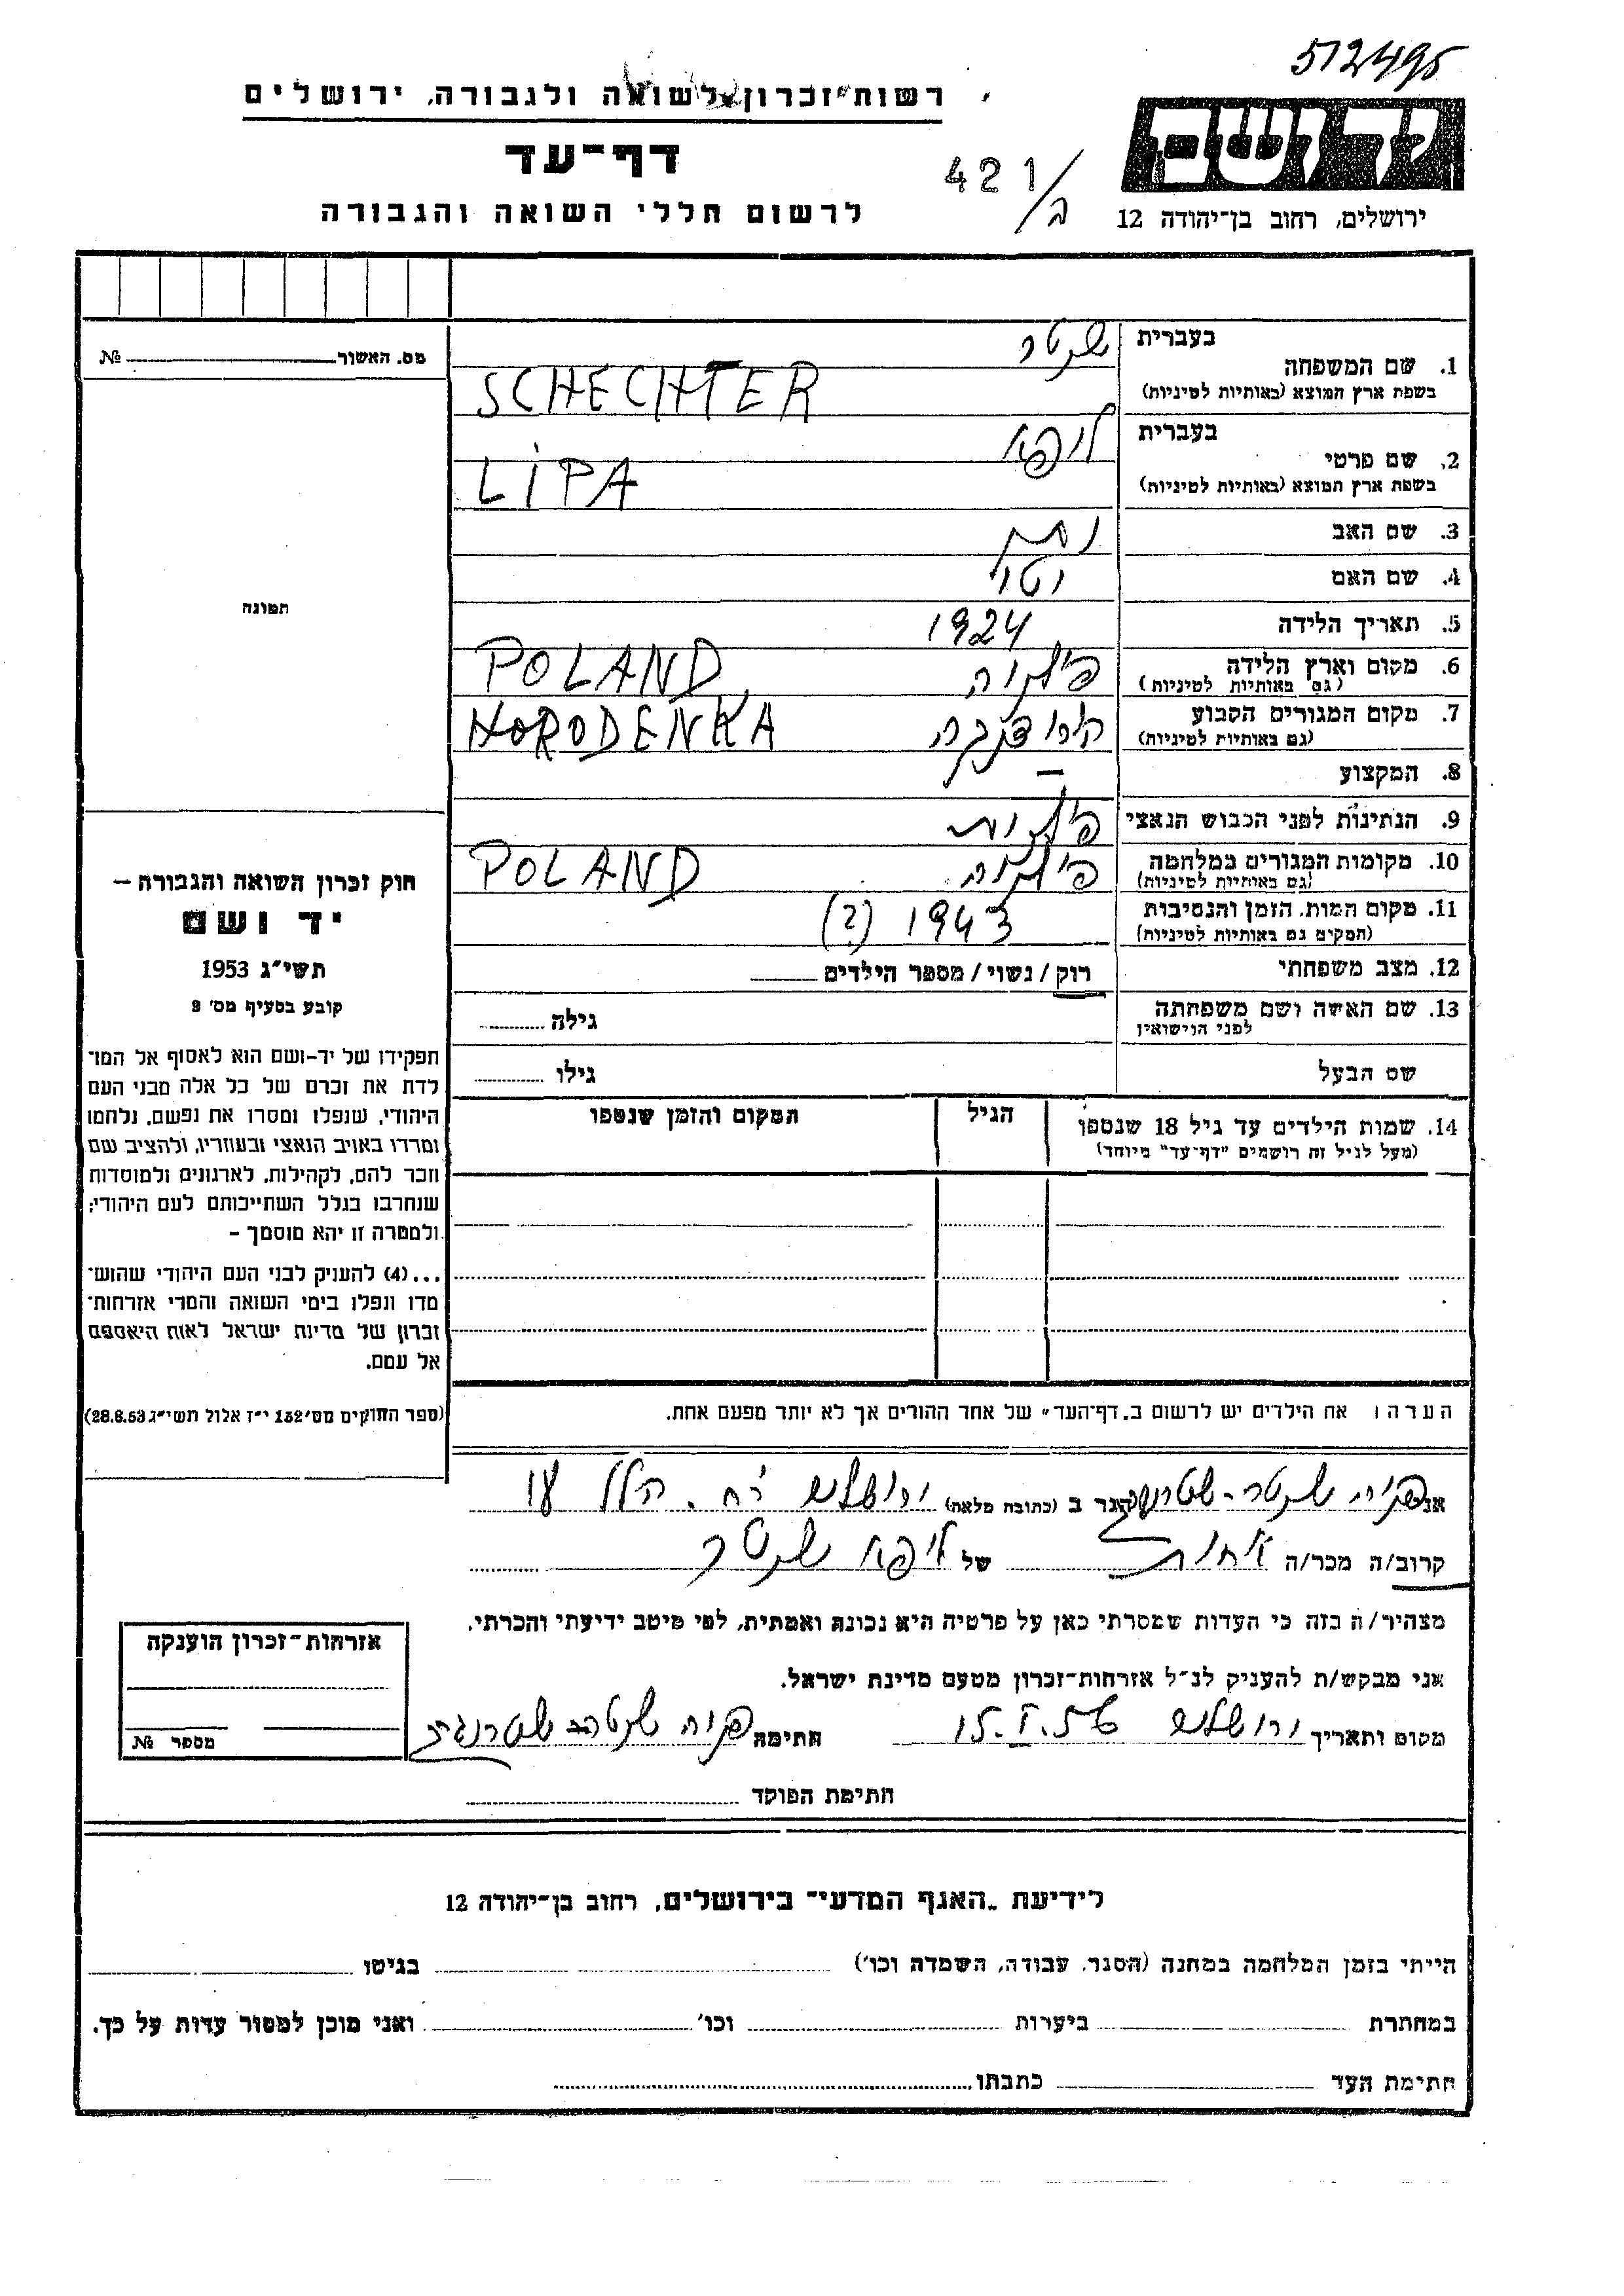 512495
רשות־זכרון לשואה ולגבורה, ירושלים
דף־עד
לרשום חללי השואה והגבורה
421/ב
יד ושם
ירושלים, רחוב בן־יהודה 12
בעברית שכטר
1. שם המשפחה
בשפת ארץ המוצא (באותיות לטיניות) SCHECHTER
בעברית ליפא
2. שם פרטי
בשפת ארץ המוצא (באותיות לטיניות) LIPA
3. שם האב
4. שם האם יטי
5. תאריך הלידה 1924
6. מקום וארץ הלידה פולניה POLAND
(גם באותיות לטיניות)
7. מקום המגורים הקבוע הורודנקה HORODENKA
(גם באותיות לטיניות)
8. המקצוע —
9. הנתינות לפני הכבוש הנאצי פולנית
10. מקומות המגורים במלחמה פולניה POLAND
(גם באותיות לטיניות)
11. מקום המות, הזמן והנסיבות 1943 (?)
(המקום גם באותיות לטיניות)
12. מצב משפחתי רוק / נשוי / מספר הילדים
13. שם האשה ושם משפחתה גילה
לפני הנישואין
שם הבעל גילו
14. שמות הילדים עד גיל 18 שנספו הגיל המקום והזמן שנספו
(מעל לגיל זה רושמים "דף־עד" מיוחד)
הערה: את הילדים יש לרשום ב„דף־העד" של אחד ההורים אך לא יותר מפעם אחת.
מס. האשור №
תמונה
חוק זכרון השואה והגבורה –
יד ושם
תשי"ג 1953
קובע בסעיף מס' 2
תפקידו של יד-ושם הוא לאסוף אל המו־
לדת את זכרם של כל אלה מבני העם
היהודי, שנפלו ומסרו את נפשם, נלחמו
ומרדו באויב הנאצי ובעוזריו, ולהציב שם
וזכר להם, לקהילות, לארגונים ולמוסדות
שנחרבו בגלל השתייכותם לעם היהודי;
ולמטרה זו יהא מוסמך –
...(4) להעניק לבני העם היהודי שהוש־
מדו ונפלו בימי השואה והמרי אזרחות־
זכרון של מדינת ישראל לאות היאספם
אל עמם.
(ספר החוקים מס' 132 י"ז אלול תשי"ג 28.8.53)
אני פניה שכטר-שטרנברג הגר ב (כתובת מלאה) ירושלים רח. הלל
קרוב/ה מכר/ה אחות של ליפא שכטר
מצהיר/ה בזה כי העדות שמסרתי כאן על פרטיה היא נכונה ואמתית, לפי מיטב ידיעתי והכרתי.
אני מבקש/ת להעניק לנ"ל אזרחות־זכרון מטעם מדינת ישראל.
מקום ותאריך ירושלים 15.I.56 חתימה פניה שכטר-שטרנברג
אזרחות־זכרון הוענקה
מספר №
חתימת הפוקד
לידיעת „האגף המדעי" בירושלים, רחוב בן־יהודה 12
הייתי בזמן המלחמה במחנה (הסגר, עבודה, השמדה וכו') בגיטו
במחתרת ביערות וכו' ואני מוכן למסור עדות על כך.
חתימת העד כתבתו